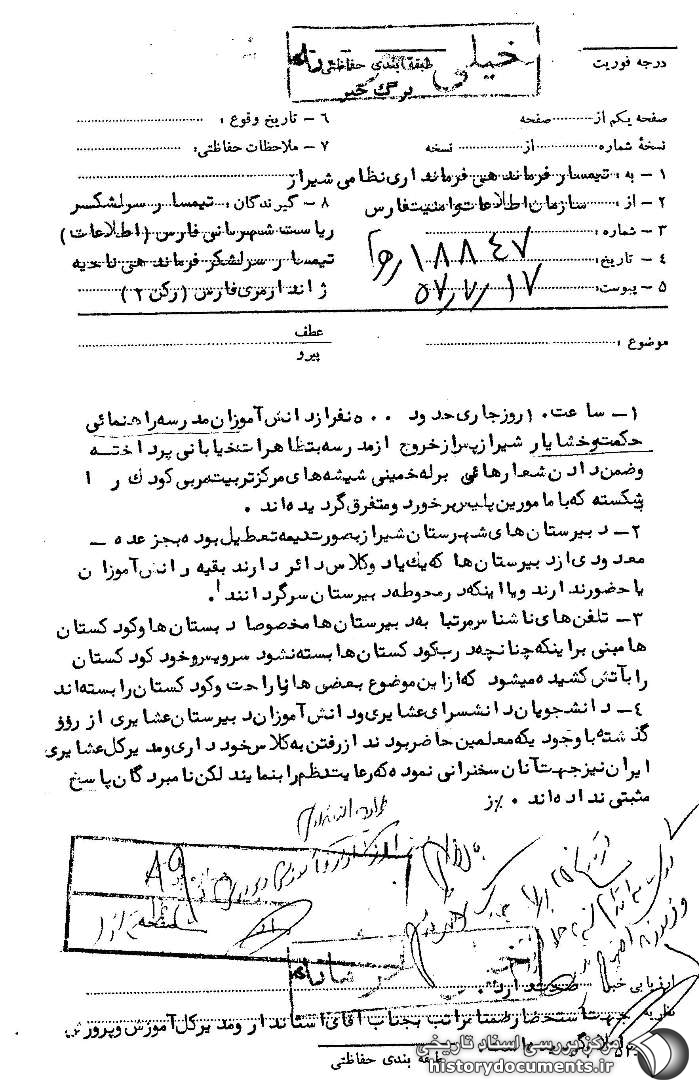 درجه فوریت
طبقه بندی حفاظتی
خیلی
برگ خبر
صفحه یکم از صفحه
نسخهٔ شماره از نسخه
۱ – به : تیمسار فرماندهی فرمانداری نظامی شیراز
۲ – از : سازمان اطلاعات و امنیت فارس
۳ – شماره : ۱۸۸۴۷
۴ – تاریخ : ۵۷/۷/۱۷
۵ – پیوست:
۶ – تاریخ وقوع :
۷ – ملاحظات حفاظتی:
۸ – گیرندگان : تیمسار سرلشکر
ریاست شهربانی فارس (اطلاعات)
تیمسار سرلشکر فرماندهی ناحیه
ژاندارمری فارس (رکن ۲)
موضوع :
عطف
پیرو
۱– ساعت ۱۰ روز جاری حدود ۵۰۰ نفر از دانش آموزان مدرسه راهنمائی
حکمت و خشایار شیراز پس از خروج از مدرسه بتظاهرات خیابانی پرداخته
و ضمن دادن شعارهائی برله خمینی شیشه های مرکز تربیت مربی کودک را
شکسته که با مامورین پلیس برخورد و متفرق گردیده اند .
۲– دبیرستان های شهرستان شیراز بصورت نیمه تعطیل بوده بجز عده –
معدودی از دبیرستان ها که یک یا دو کلاس دائر دارند بقیه دانش آموزان
یا حضور ندارند و یا اینکه در محوطه دبیرستان سرگردانند .
۳– تلفن های ناشناس مرتبا به دبیرستان ها مخصوصا دبستان ها و کودکستان
ها مبنی بر اینکه چنانچه درب کودکستان ها بسته نشود سرویس و خود کودکستان
را بآتش کشیده میشود که از این موضوع بعضی ها ناراحت و کودکستان را بسته اند
۴– دانشجویان دانشسرای عشایری و دانش آموزان دبیرستان عشایری از روز
گذشته با وجودیکه معلمین حاضر بودند از رفتن به کلاس خودداری و مدیرکل عشایری
ایران نیز جهت آنان سخنرانی نموده که رعایت نظم را بنمایند لکن نامبردگان پاسخ
مثبتی نداده اند . ز
صفحه
ارزیابی خبر : صحت دارد .
نظریه : جهت استحضار ضمنا مراتب بجناب آقای استاندار و مدیرکل آموزش و پرورش
طبقه بندی حفاظتی
مرکز بررسی اسناد تاریخی
historydocuments.ir